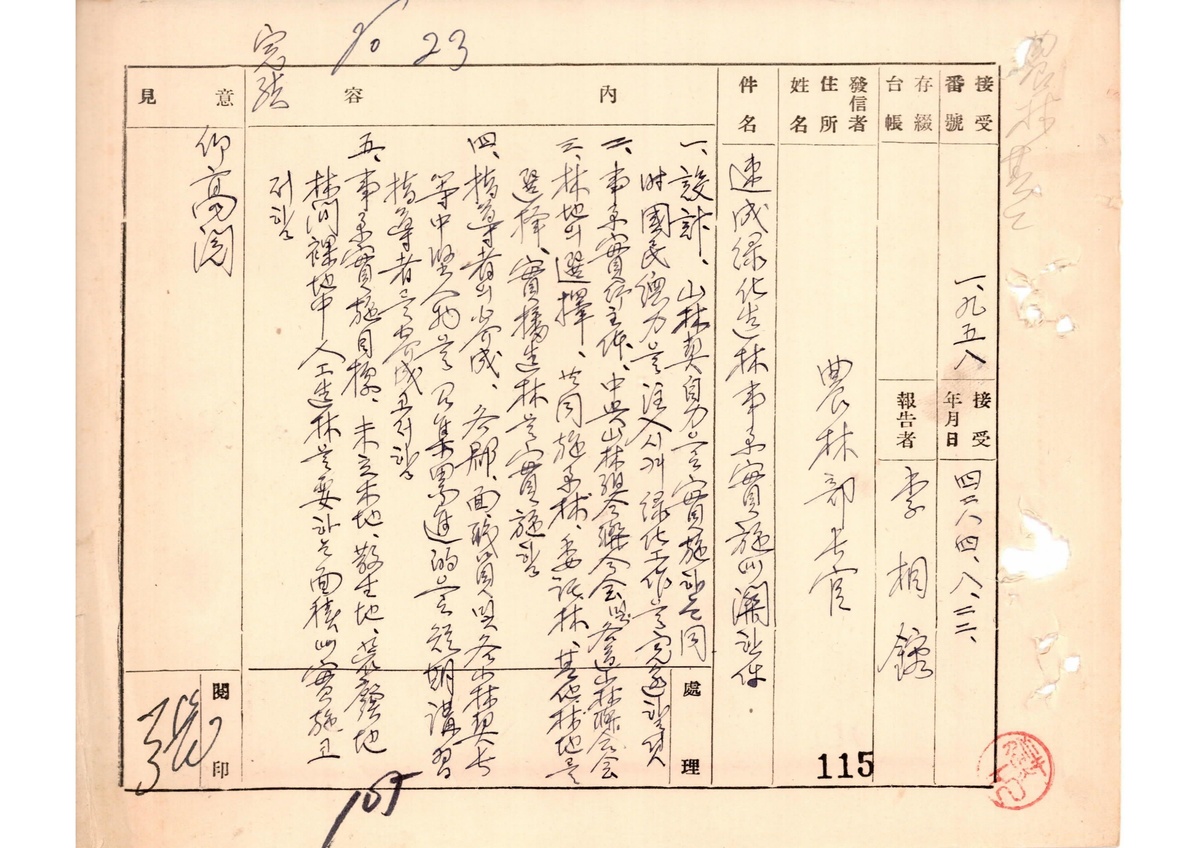 23
接受番號
一、九五八
接受年月日
四二八四、八、二二、
存綴台帳
報告者
李相錄
發信者
住所
姓名
農林部長官
件名
速成綠化造林事業實施에 關한 件
內容
一、設計、山林契自力으로 實施하는 同
時 國民總力을 注入시켜 綠化工作을 完遂할 것
二、事業實行主体、中央山林組合聯合會 與 各道山林聯合會
三、林地의 選擇、共同施業林、委託林、其他林地를
選擇、實播造林을 實施함
四、指導者의 養成、各郡、面職員 與 各山林契長
等 中堅人物을 召集 累進的으로 短期講習
指導者를 養成코저 함
五、事業實施目標、未立木地、散生地、荒廢地
林間裸地中 人工造林을 要하는 面積에 實施코
저 함
處理
意見
仰高閱
閱印
115
105